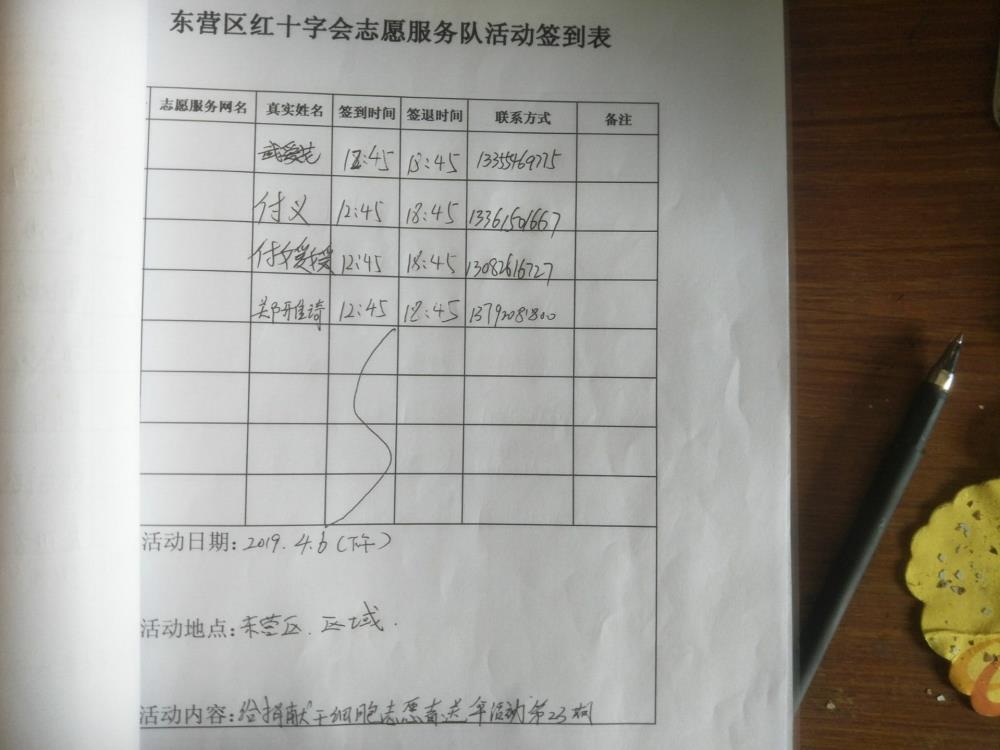 东营区红十字会志愿服务队活动签到表
志愿服务网名 真实姓名 签到时间 签退时间 联系方式 备注
12:45 18:45 13355469775
付义 12:45 18:45 13361501667
付 12:45 18:45 13082616727
郑 佳琦 12:45 18:45 13792081800
活动日期:2019.4.6(下午)
活动地点:东营区.区域.
活动内容:给捐献干细胞志愿者送 活动第23